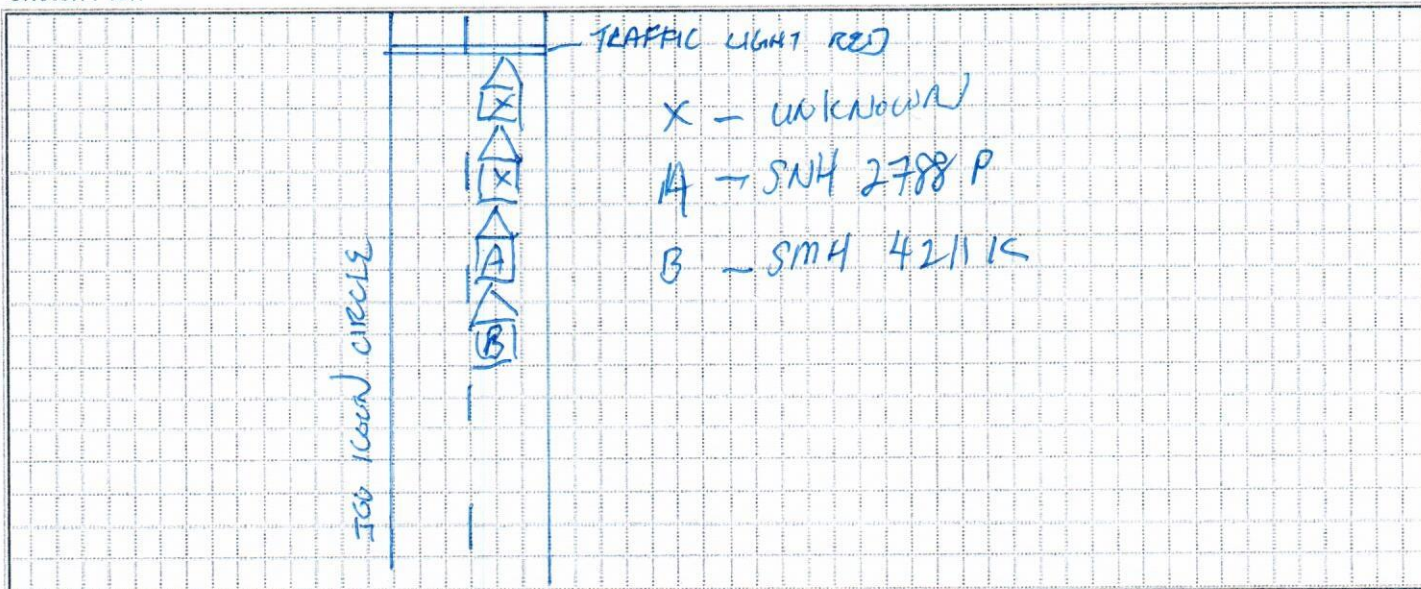 TRAFFIC LIGHT RED
X
X
A
B
X - UNKNOWN
A - SNH 2788 P
B - SMH 4211 K
JOO KOON CIRCLE